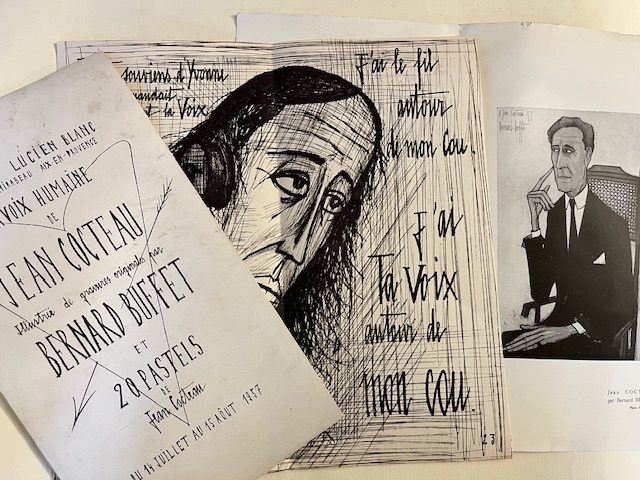 LUCIEN BLANC
MIRABEAU AIX-EN-PROVENCE
VOIX HUMAINE
DE
JEAN COCTEAU
illustrée de gravures originales par
BERNARD BUFFET
ET
20 PASTELS
DE
Jean Cocteau
DU 14 JUILLET AU 15 AOÛT 1957
souviens d'Yvonne
mandait
la Voix
J'ai le fil
autour
de mon cou.
J'ai
Ta Voix
autour de
mon cou.
23
Jean Cocteau
Bernard Buffet
Jean COCT
par Bernard B